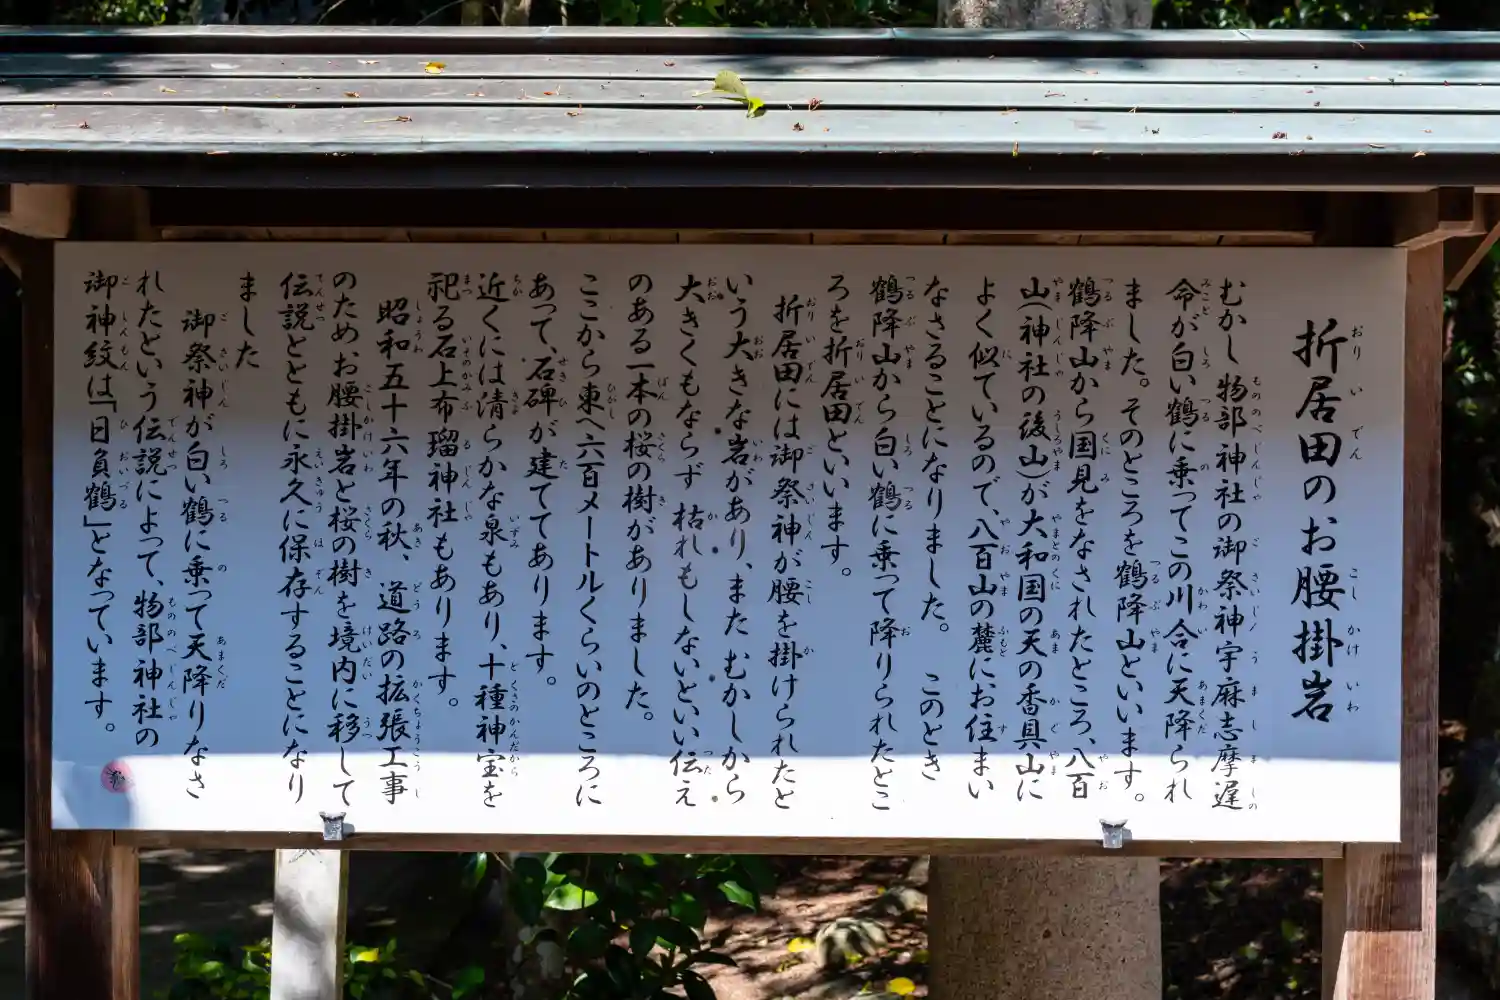 折居田のお腰掛岩
むかし物部神社の御祭神宇麻志摩遅
命が白い鶴に乗ってこの川合に天降られ
ました。そのところを鶴降山といいます。
鶴降山から国見をなされたところ、八百
山(神社の後山)が大和国の天の香具山に
よく似ているので、八百山の麓にお住まい
なさることになりました。 このとき
鶴降山から白い鶴に乗って降りられたとこ
ろを折居田といいます。
折居田には御祭神が腰を掛けられたと
いう大きな岩があり、また むかしから
大きくもならず 枯れもしないといい伝え
のある一本の桜の樹がありました。
ここから東へ六百メートルくらいのところに
あって、石碑が建ててあります。
近くには清らかな泉もあり、十種神宝を
祀る石上布瑠神社もあります。
昭和五十六年の秋、道路の拡張工事
のため、お腰掛岩と桜の樹を境内に移して
伝説とともに永久に保存することになり
ました
御祭神が白い鶴に乗って天降りなさ
れたという伝説によって、物部神社の
御神紋は「日負鶴」となっています。